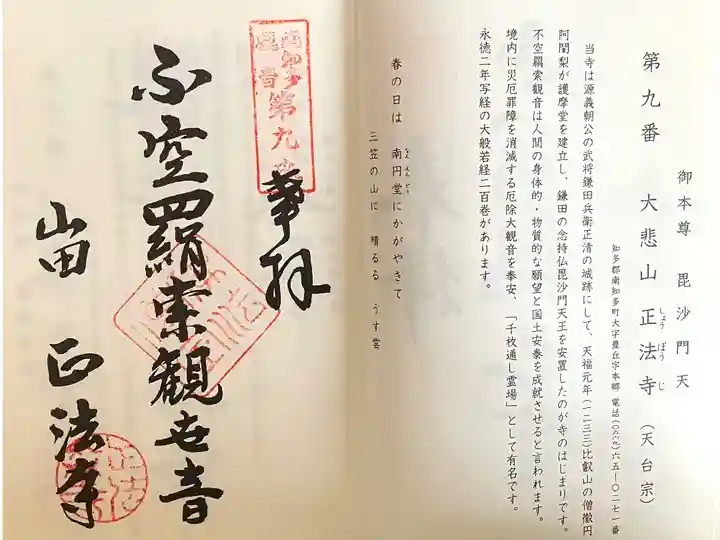 第九番 大悲山正法寺(天台宗)
しょうぼうじ
御本尊 毘沙門天
知多郡南知多町大字豊丘字本郷 電話(〇六九)六五ー〇二七一番
当寺は源義朝公の武将鎌田兵衛正清の城跡にして、天福元年(一二三三)比叡山の僧徹円
阿闍梨が護摩堂を建立し、鎌田の念持仏毘沙門天王を安置したのが寺のはじまりです。
不空羂索観音は人間の身体的・物質的な願望と国土安泰を成就させると言われます。
境内に災厄罪障を消滅する厄除大観音を奉安、「千枚通し霊場」として有名です。
永徳二年写経の大般若経二百巻があります。
春の日は 南円堂にかがやきて
三笠の山に 晴るる うす雲
南知多
観音
第九番
奉拝
不空羂索観世音
山田 正法寺